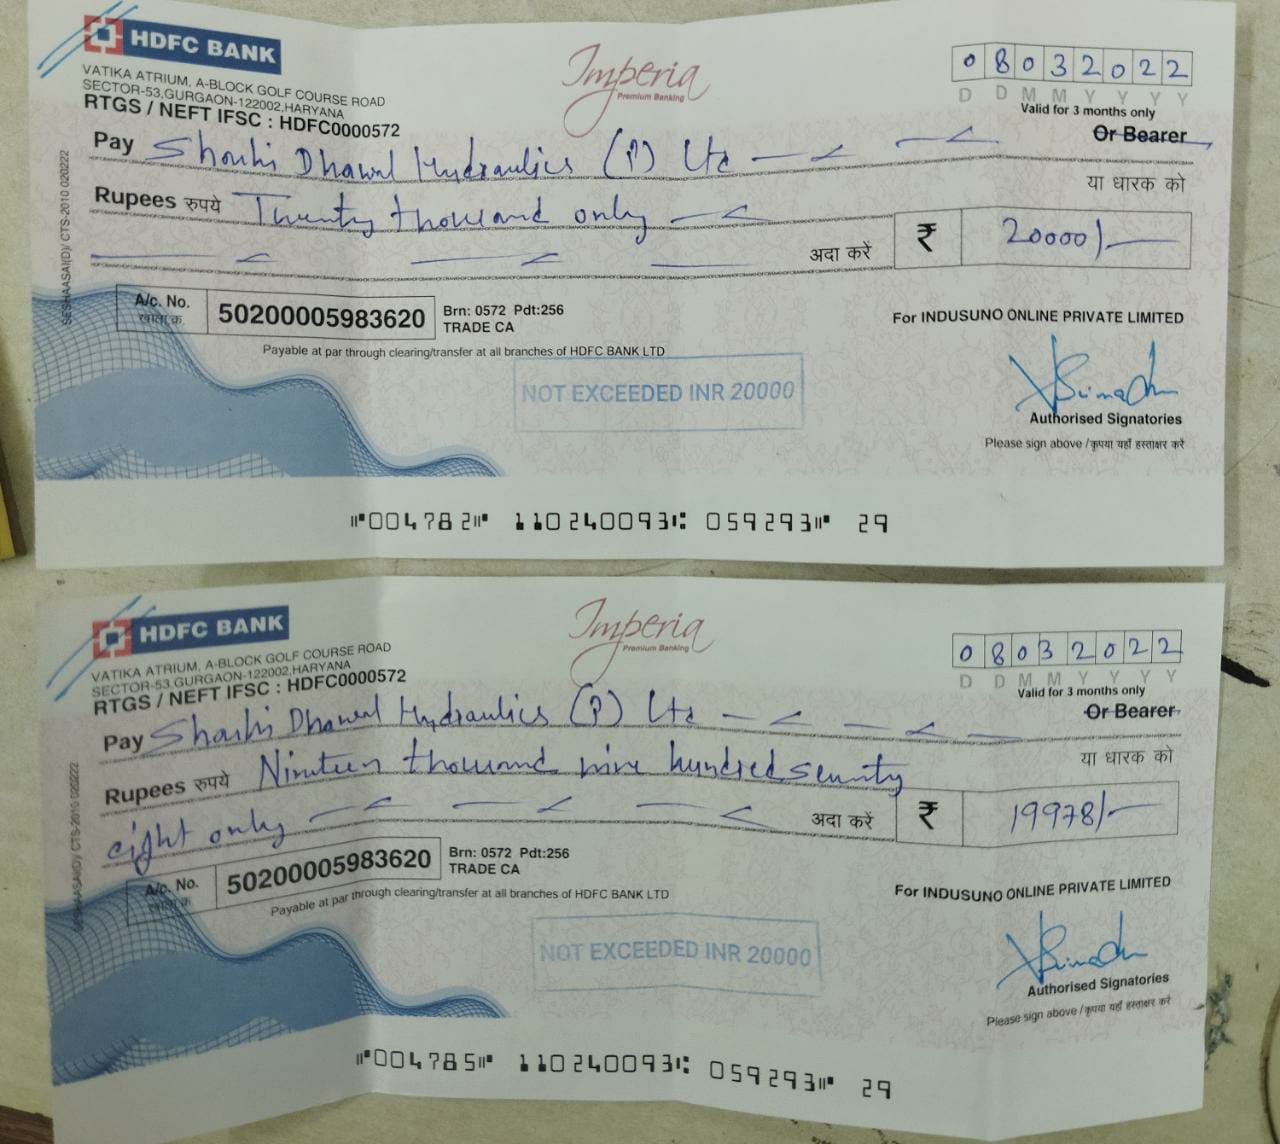 HDFC BANK
VATIKA ATRIUM, A-BLOCK GOLF COURSE ROAD
SECTOR-53,GURGAON-122002,HARYANA
RTGS / NEFT IFSC : HDFC0000572
Imperia
Premium Banking
0 8 0 3 2 0 2 2
D D M M Y Y Y Y
Valid for 3 months only
Pay Shashi Dhawal Hydraulics (P) Ltd Or Bearer
या धारक को
Rupees रुपये Twenty thousand only
अदा करें ₹ 20000/-
A/c. No.
खाता क्र. 50200005983620 Brn: 0572 Pdt:256
TRADE CA
Payable at par through clearing/transfer at all branches of HDFC BANK LTD
NOT EXCEEDED INR 20000
For INDUSUNO ONLINE PRIVATE LIMITED
Authorised Signatories
Please sign above /कृपया यहाँ हस्ताक्षर करें
SESHAASAI(D)/ CTS-2010 020222
⑈004782⑈ 110240093⑆ 059293⑈ 29
HDFC BANK
VATIKA ATRIUM, A-BLOCK GOLF COURSE ROAD
SECTOR-53,GURGAON-122002,HARYANA
RTGS / NEFT IFSC : HDFC0000572
Imperia
Premium Banking
0 8 0 3 2 0 2 2
D D M M Y Y Y Y
Valid for 3 months only
Pay Shashi Dhawal Hydraulics (P) Ltd Or Bearer
या धारक को
Rupees रुपये Nineteen thousand nine hundred seventy
eight only अदा करें ₹ 19978/-
A/c. No.
खाता क्र. 50200005983620 Brn: 0572 Pdt:256
TRADE CA
Payable at par through clearing/transfer at all branches of HDFC BANK LTD
NOT EXCEEDED INR 20000
For INDUSUNO ONLINE PRIVATE LIMITED
Authorised Signatories
Please sign above /कृपया यहाँ हस्ताक्षर करें
SESHAASAI(D)/ CTS-2010 020222
⑈004785⑈ 110240093⑆ 059293⑈ 29